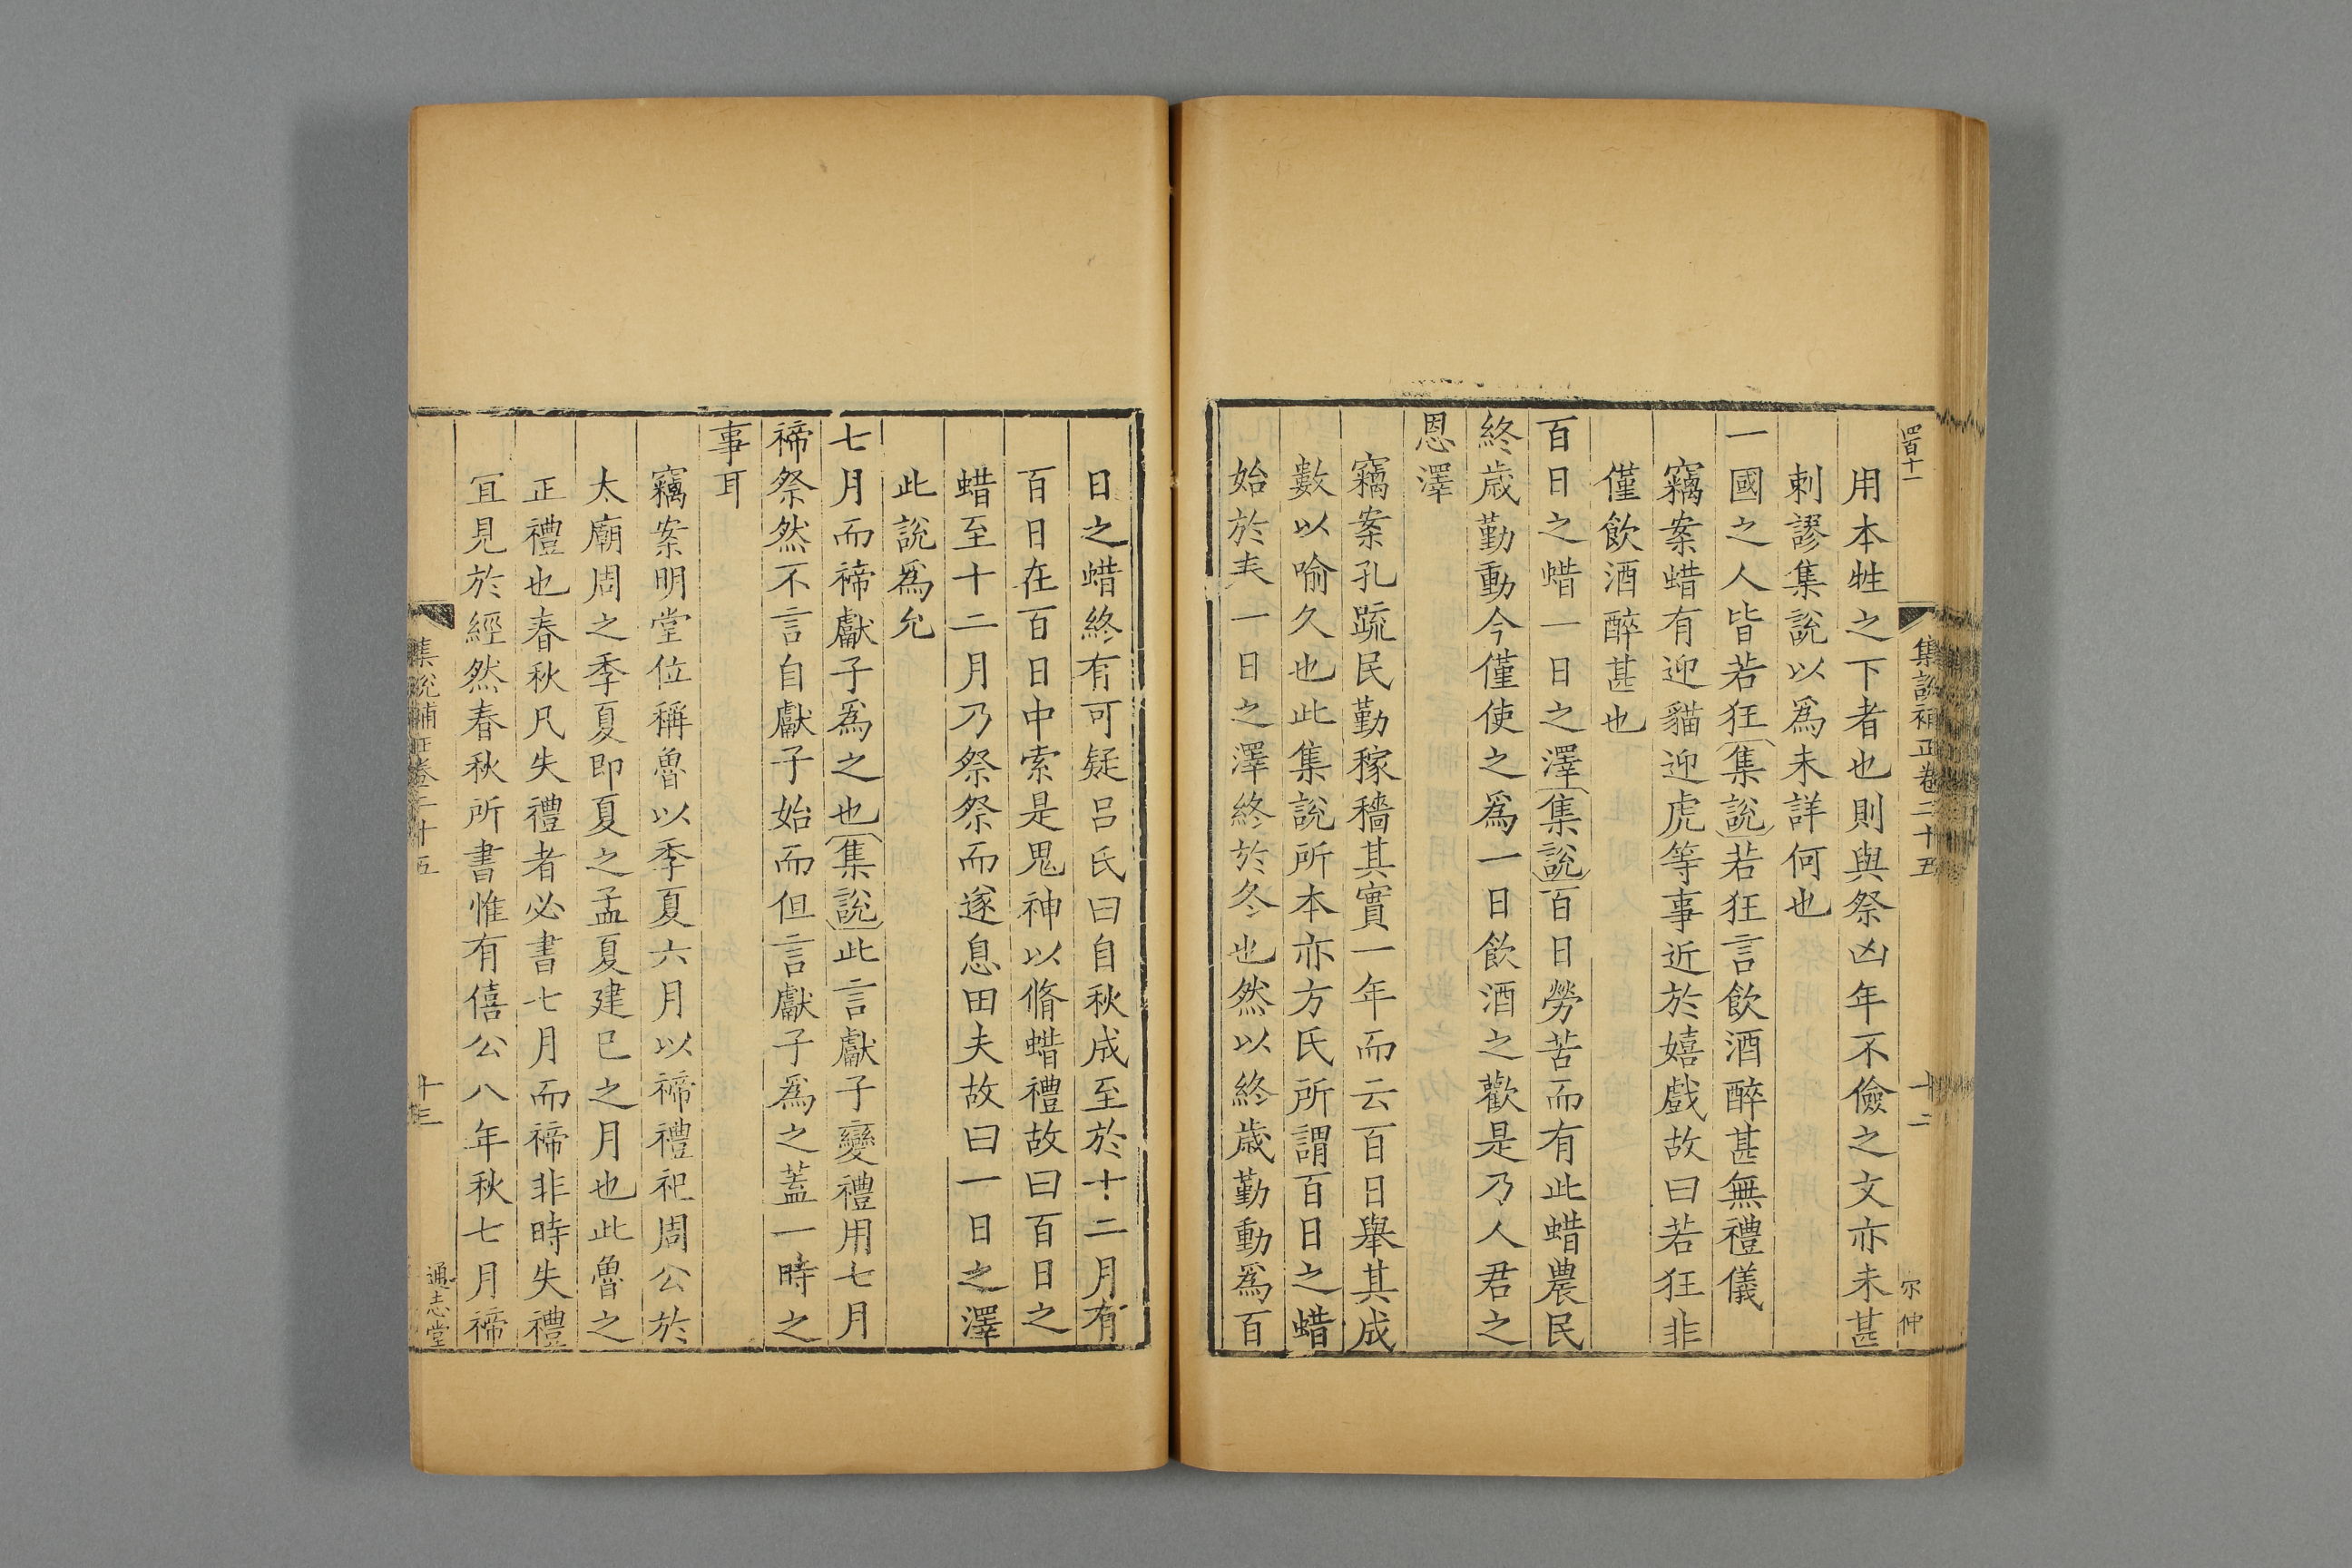 四百十一
集說補正卷三十五
十二
尔仲
用本牲之下者也則與祭凶年不儉之文亦未甚
剌謬集說以爲未詳何也
一國之人皆若狂集說若狂言飲酒醉甚無禮儀
竊案蜡有迎貓迎虎等事近於嬉戲故曰若狂非
僅飲酒醉甚也
百日之蜡一日之澤集說百日勞苦而有此蜡農民
終歲勤動今僅使之爲一日飲酒之歡是乃人君之
恩澤
竊案孔疏民勤稼穡其實一年而云百日舉其成
數以喻久也此集說所本亦方氏所謂百日之蜡
始於春一日之澤終於冬也然以終歲勤動爲百
日之蜡終有可疑呂氏曰自秋成至於十二月有
百日在百日中索是鬼神以脩蜡禮故曰百日之
蜡至十二月乃祭祭而遂息田夫故曰一日之澤
此說爲允
七月而禘獻子爲之也集說此言獻子變禮用七月
禘祭然不言自獻子始而但言獻子爲之蓋一時之
事耳
竊案明堂位稱魯以季夏六月以禘禮祀周公於
太廟周之季夏即夏之孟夏建巳之月也此魯之
正禮也春秋凡失禮者必書七月而禘非時失禮
宜見於經然春秋所書惟有僖公八年秋七月禘
集說補正卷三十五
十三
通志堂